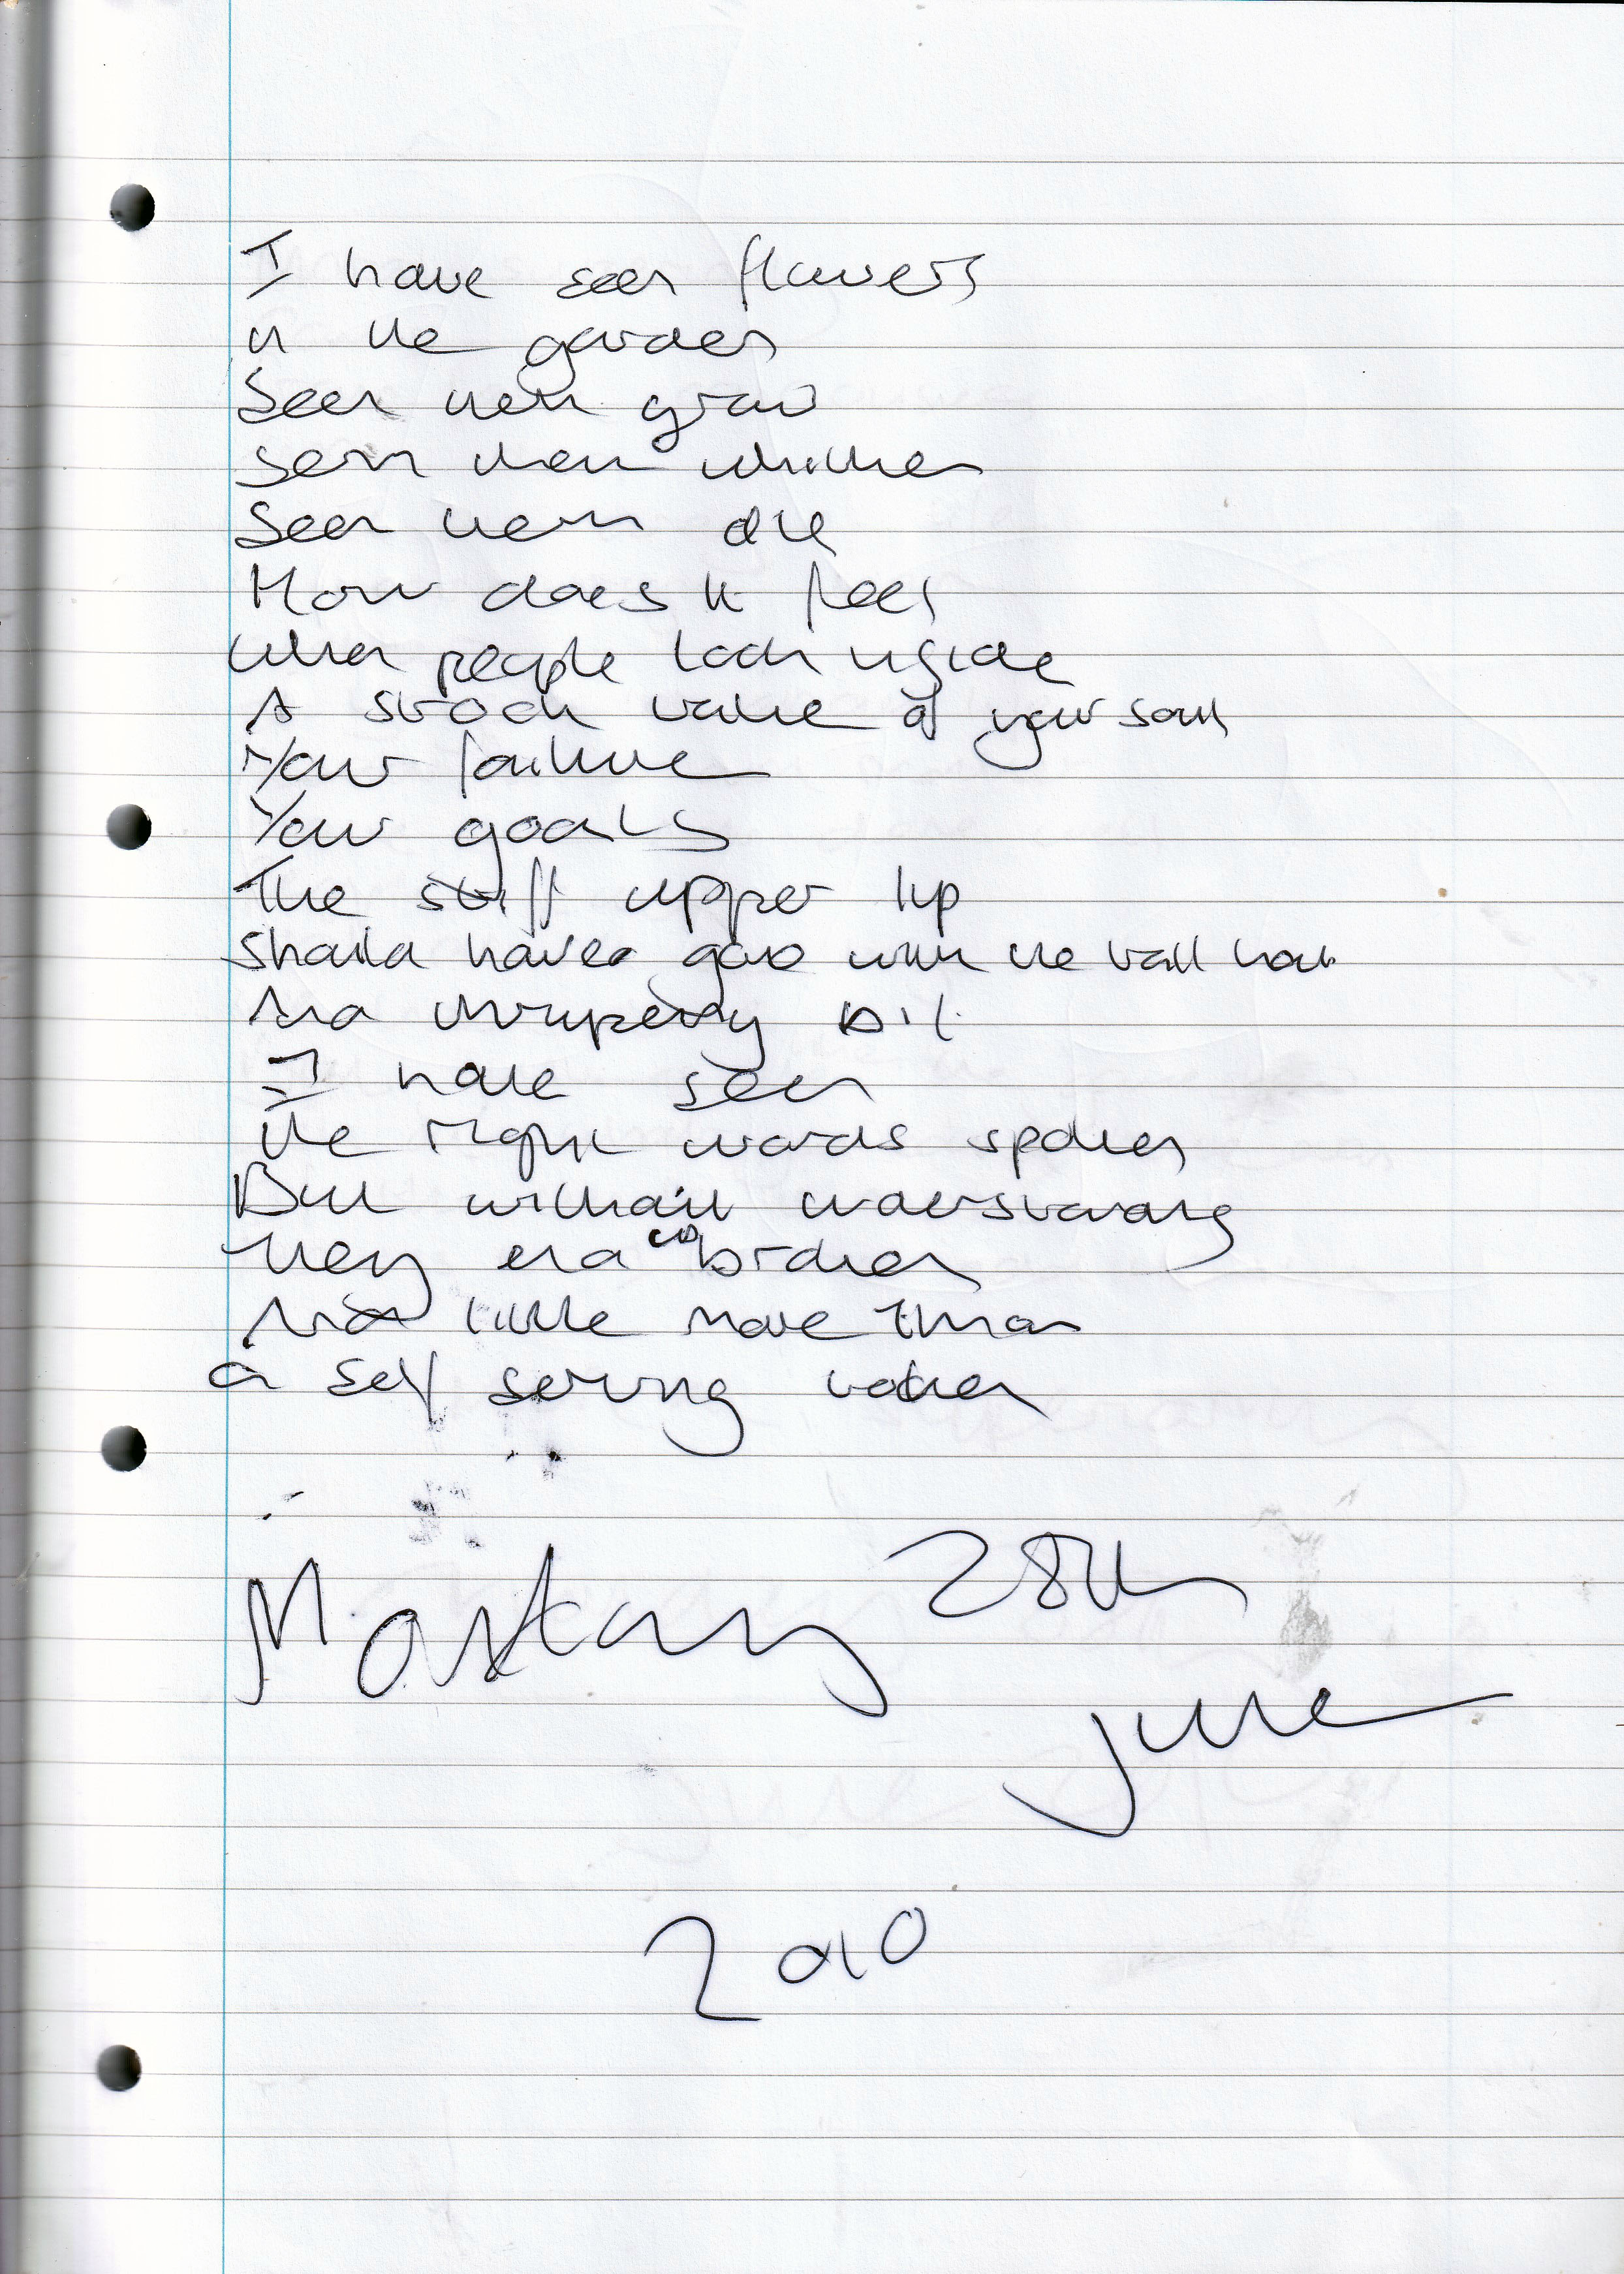 I have seen flowers
in the garden
Seen them grow
seen them whither
Seen them die
How does it feel
when people look inside
A stock value of your soul
Your failure
Your goals
The stiff upper lip
should have gone with the tall hat
And thrupenny bit
I have seen
the right words spoken
But without understanding
they end up broken
And little more than
a self serving token
Monday 28th
June
2010